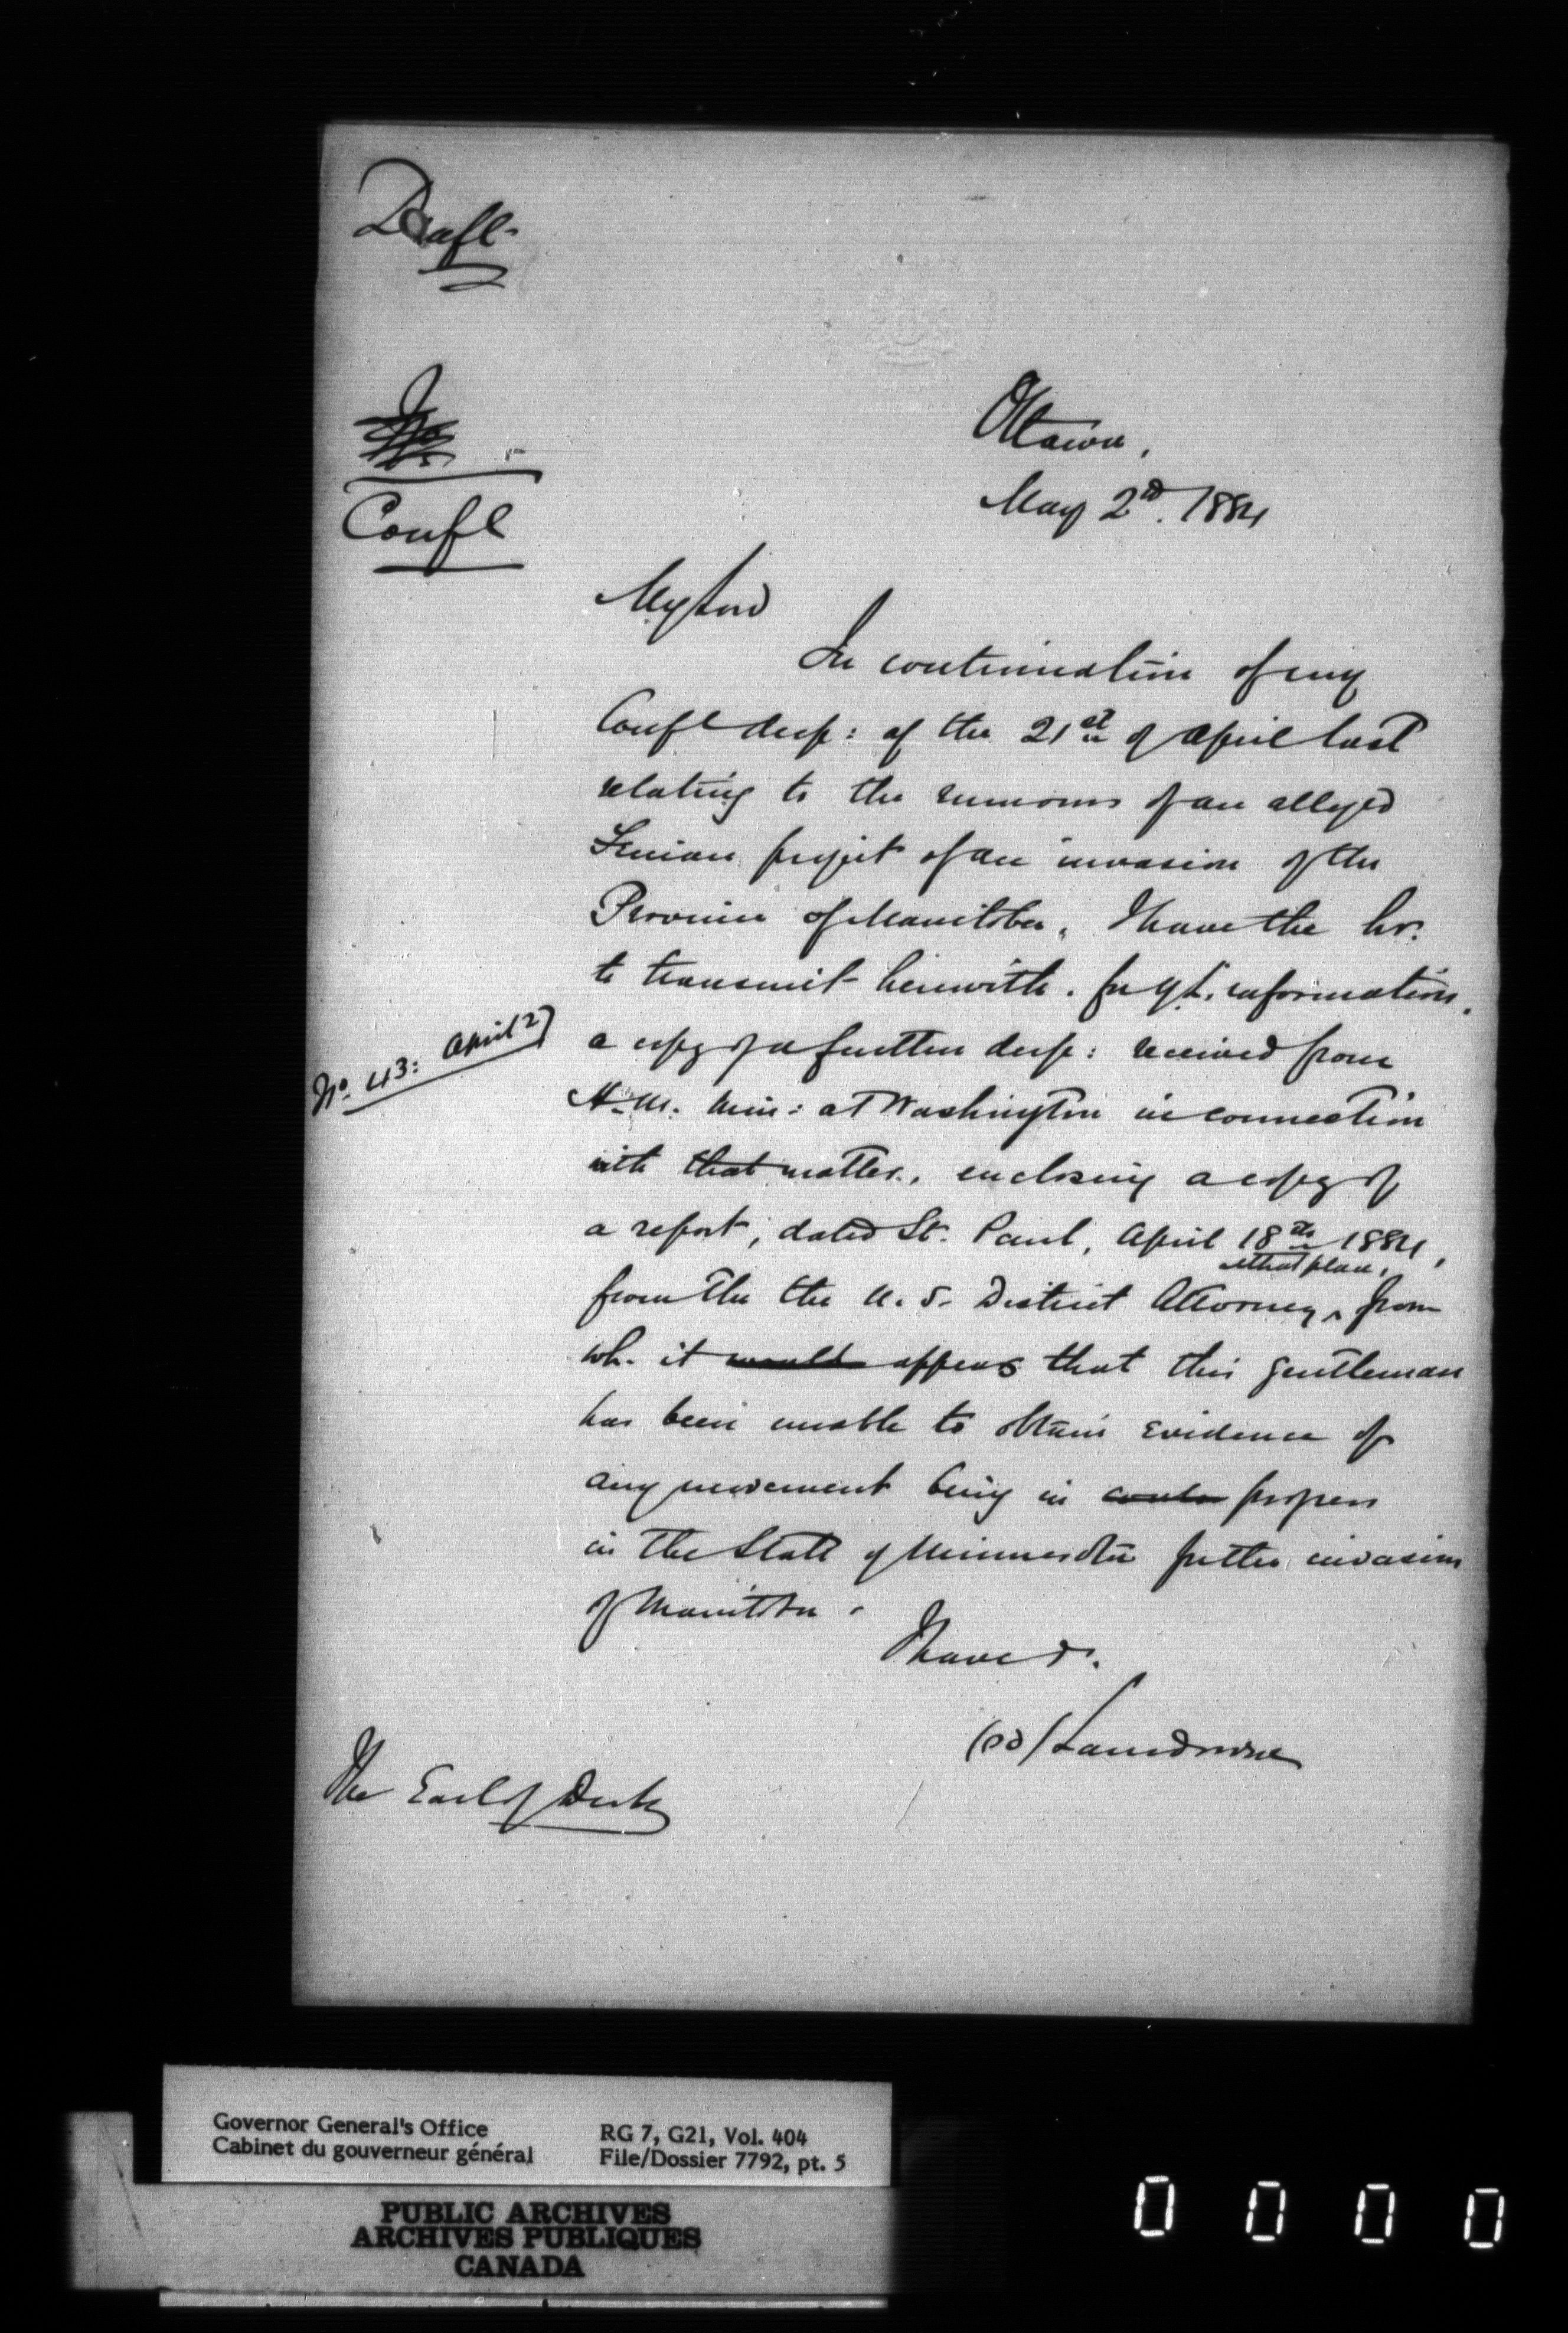 Draft
No
Confl
Ottawa,
May 2nd. 1884
My Lord
In continuation of my
Confl desp: of the 21st of April last
relating to the rumours of an alleged
Fenian project of an invasion of the
Province of Manitoba, I have the hr.
to transmit herewith, for Y.L. information,
No. 43: April 27
a copy of a further desp: received from
H.M. Min: at Washington in connection
with that matter, enclosing a copy of
a report, dated St. Paul, April 18th 1884,
at that place,
from the the U.S. District Attorney, from
wh. it would appears that this gentleman
has been unable to obtain evidence of
any movement being in progress
in the State of Minnesota for the invasion
of Manitoba.
I have &.
(sd) Lansdowne
The Earl of Derby
Governor General's Office
Cabinet du gouverneur général
RG 7, G21, Vol. 404
File/Dossier 7792, pt. 5
PUBLIC ARCHIVES
ARCHIVES PUBLIQUES
CANADA
0 0 0 0